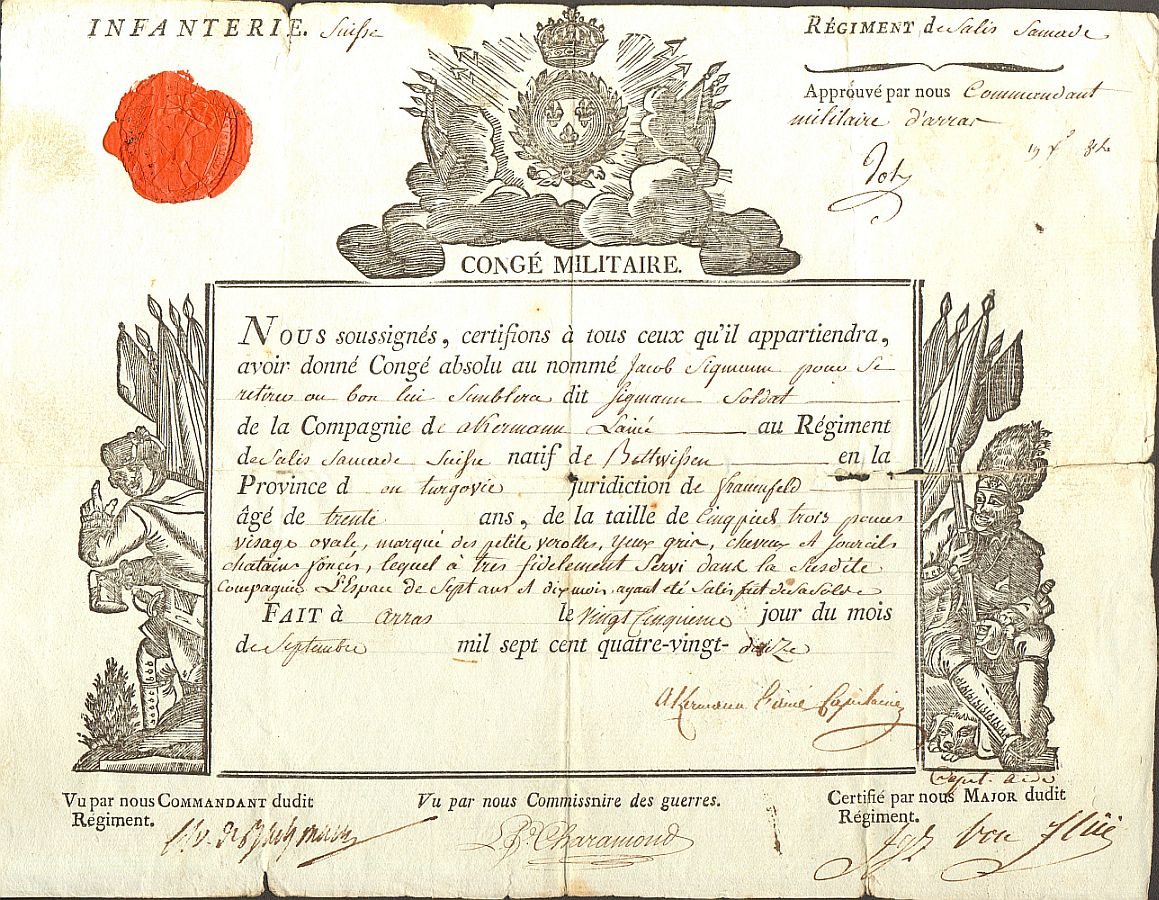 INFANTERIE. Suisse
RÉGIMENT de Salis Samade
Approuvé par nous Commandant
militaire d'arras
CONGÉ MILITAIRE.
NOUS soussignés, certifions à tous ceux qu'il appartiendra,
avoir donné Congé absolu au nommé Jacob Sigmunn pour se
retirer ou bon lui Semblera dit Sigmann Soldat
de la Compagnie de akermann Lainé au Régiment
de Salis Samade Suisse natif de Bottwissen en la
Province d en turgovie juridiction de frauenfeld
âgé de trente ans, de la taille de Cinq pied trois pouces
visage ovale, marqué des petite verolles, yeux gris, cheveux et Sourcils
chatain foncés, lequel à tres fidelement Servi dans la Susdite
Compagnie L'Espace de Sept ans et dix mois, ayant été Salisfait de sa Solde
FAIT à arras le Vingt Cinquieme jour du mois
de Septembre mil sept cent quatre-vingt-douze
Akermann Lainé Capitaine
Vu par nous COMMANDANT dudit
Régiment.
Vu par nous Commissnire des guerres.
Charamond
Capit. aide
Certifié par nous MAJOR dudit
Régiment.
von flüe